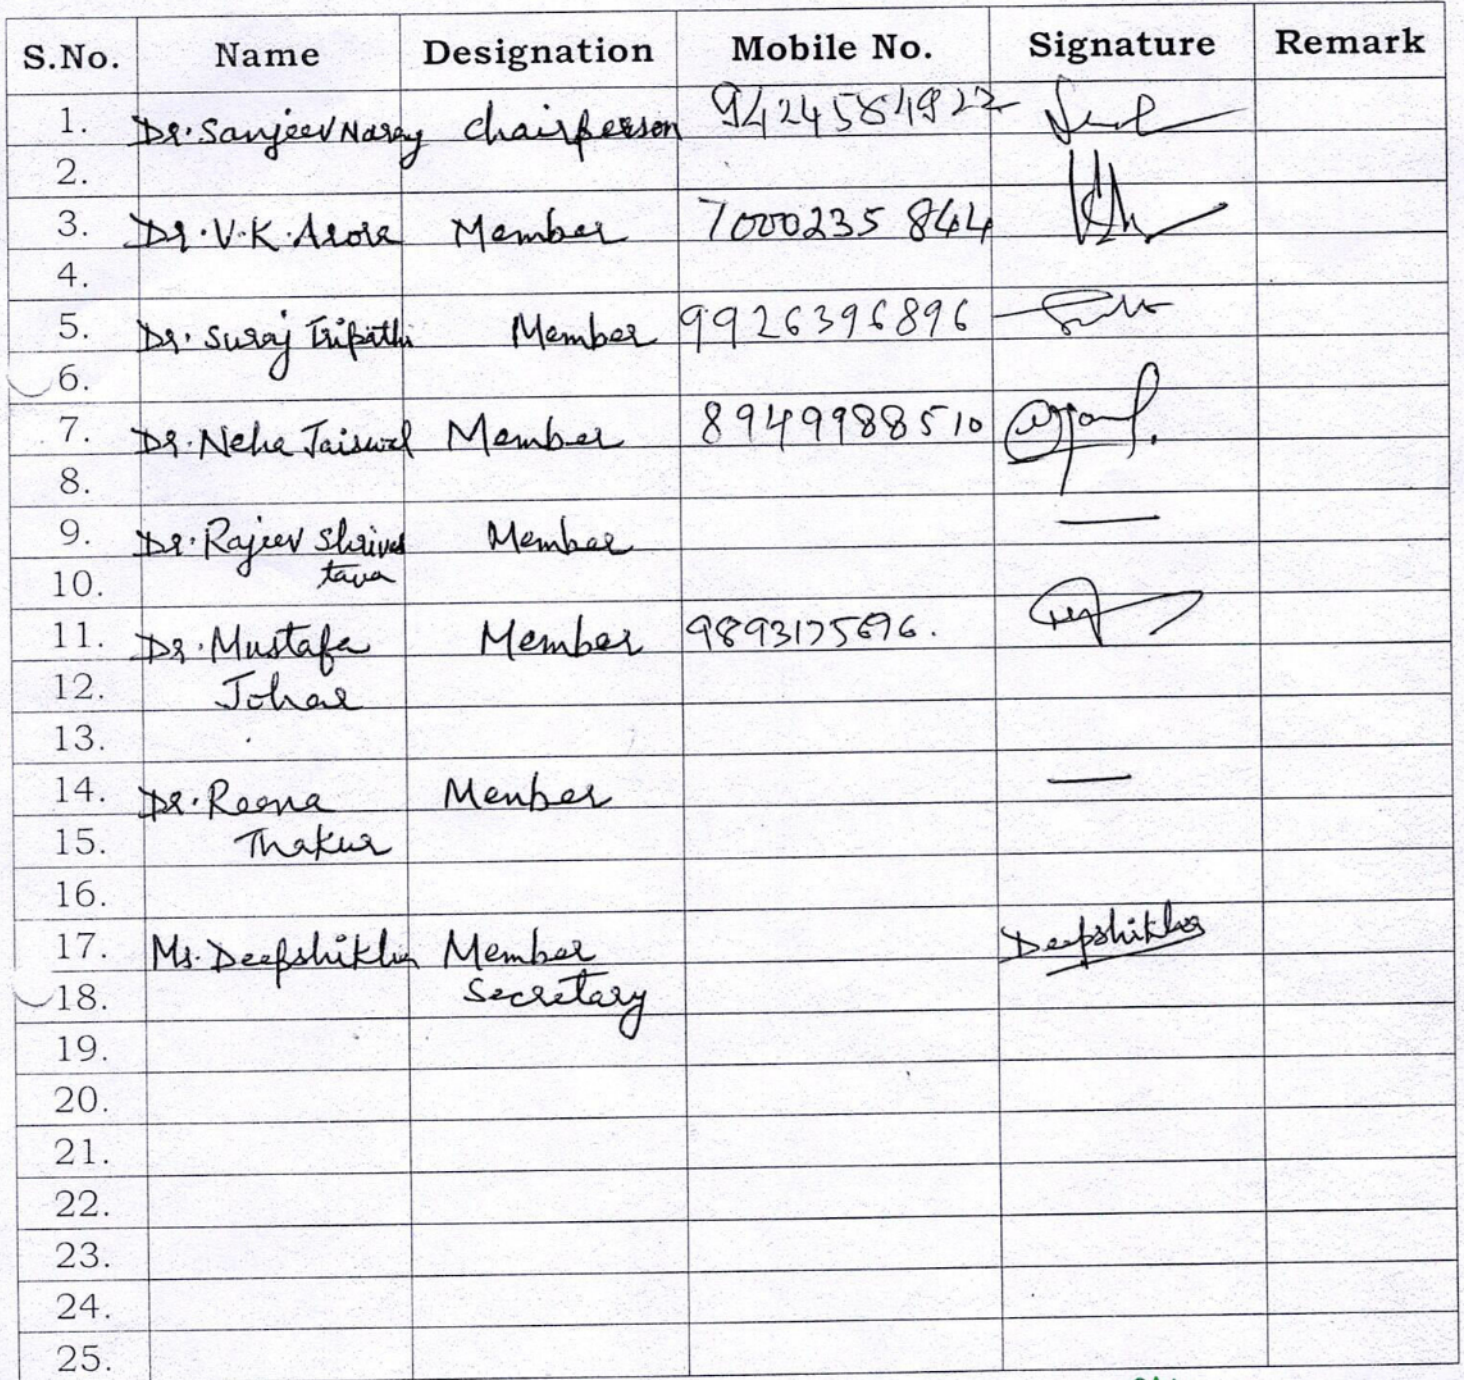 S.No. Name Designation Mobile No. Signature Remark
1. Dr. Sanjeev Naray Chairperson 9424584922
2.
3. Dr. V.K. Arora Member 7000235844
4.
5. Dr. Suraj Tripathi Member 9926396896
6.
7. Dr. Neha Jaiswal Member 8949988510
8.
9. Dr. Rajeev Shrivas Member —
10. tava
11. Dr. Mustafa Member 9893175696.
12. Johar
13.
14. Dr. Reena Member —
15. Thakur
16.
17. Ms. Deepshikha Member Deepshikha
18. Secretary
19.
20.
21.
22.
23.
24.
25.